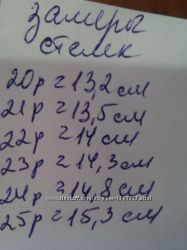 Замеры
стелек
20р = 13,2 см
21р = 13,5 см
22р = 14 см
23р = 14,3 см
24р = 14,8 см
25р = 15,3 см